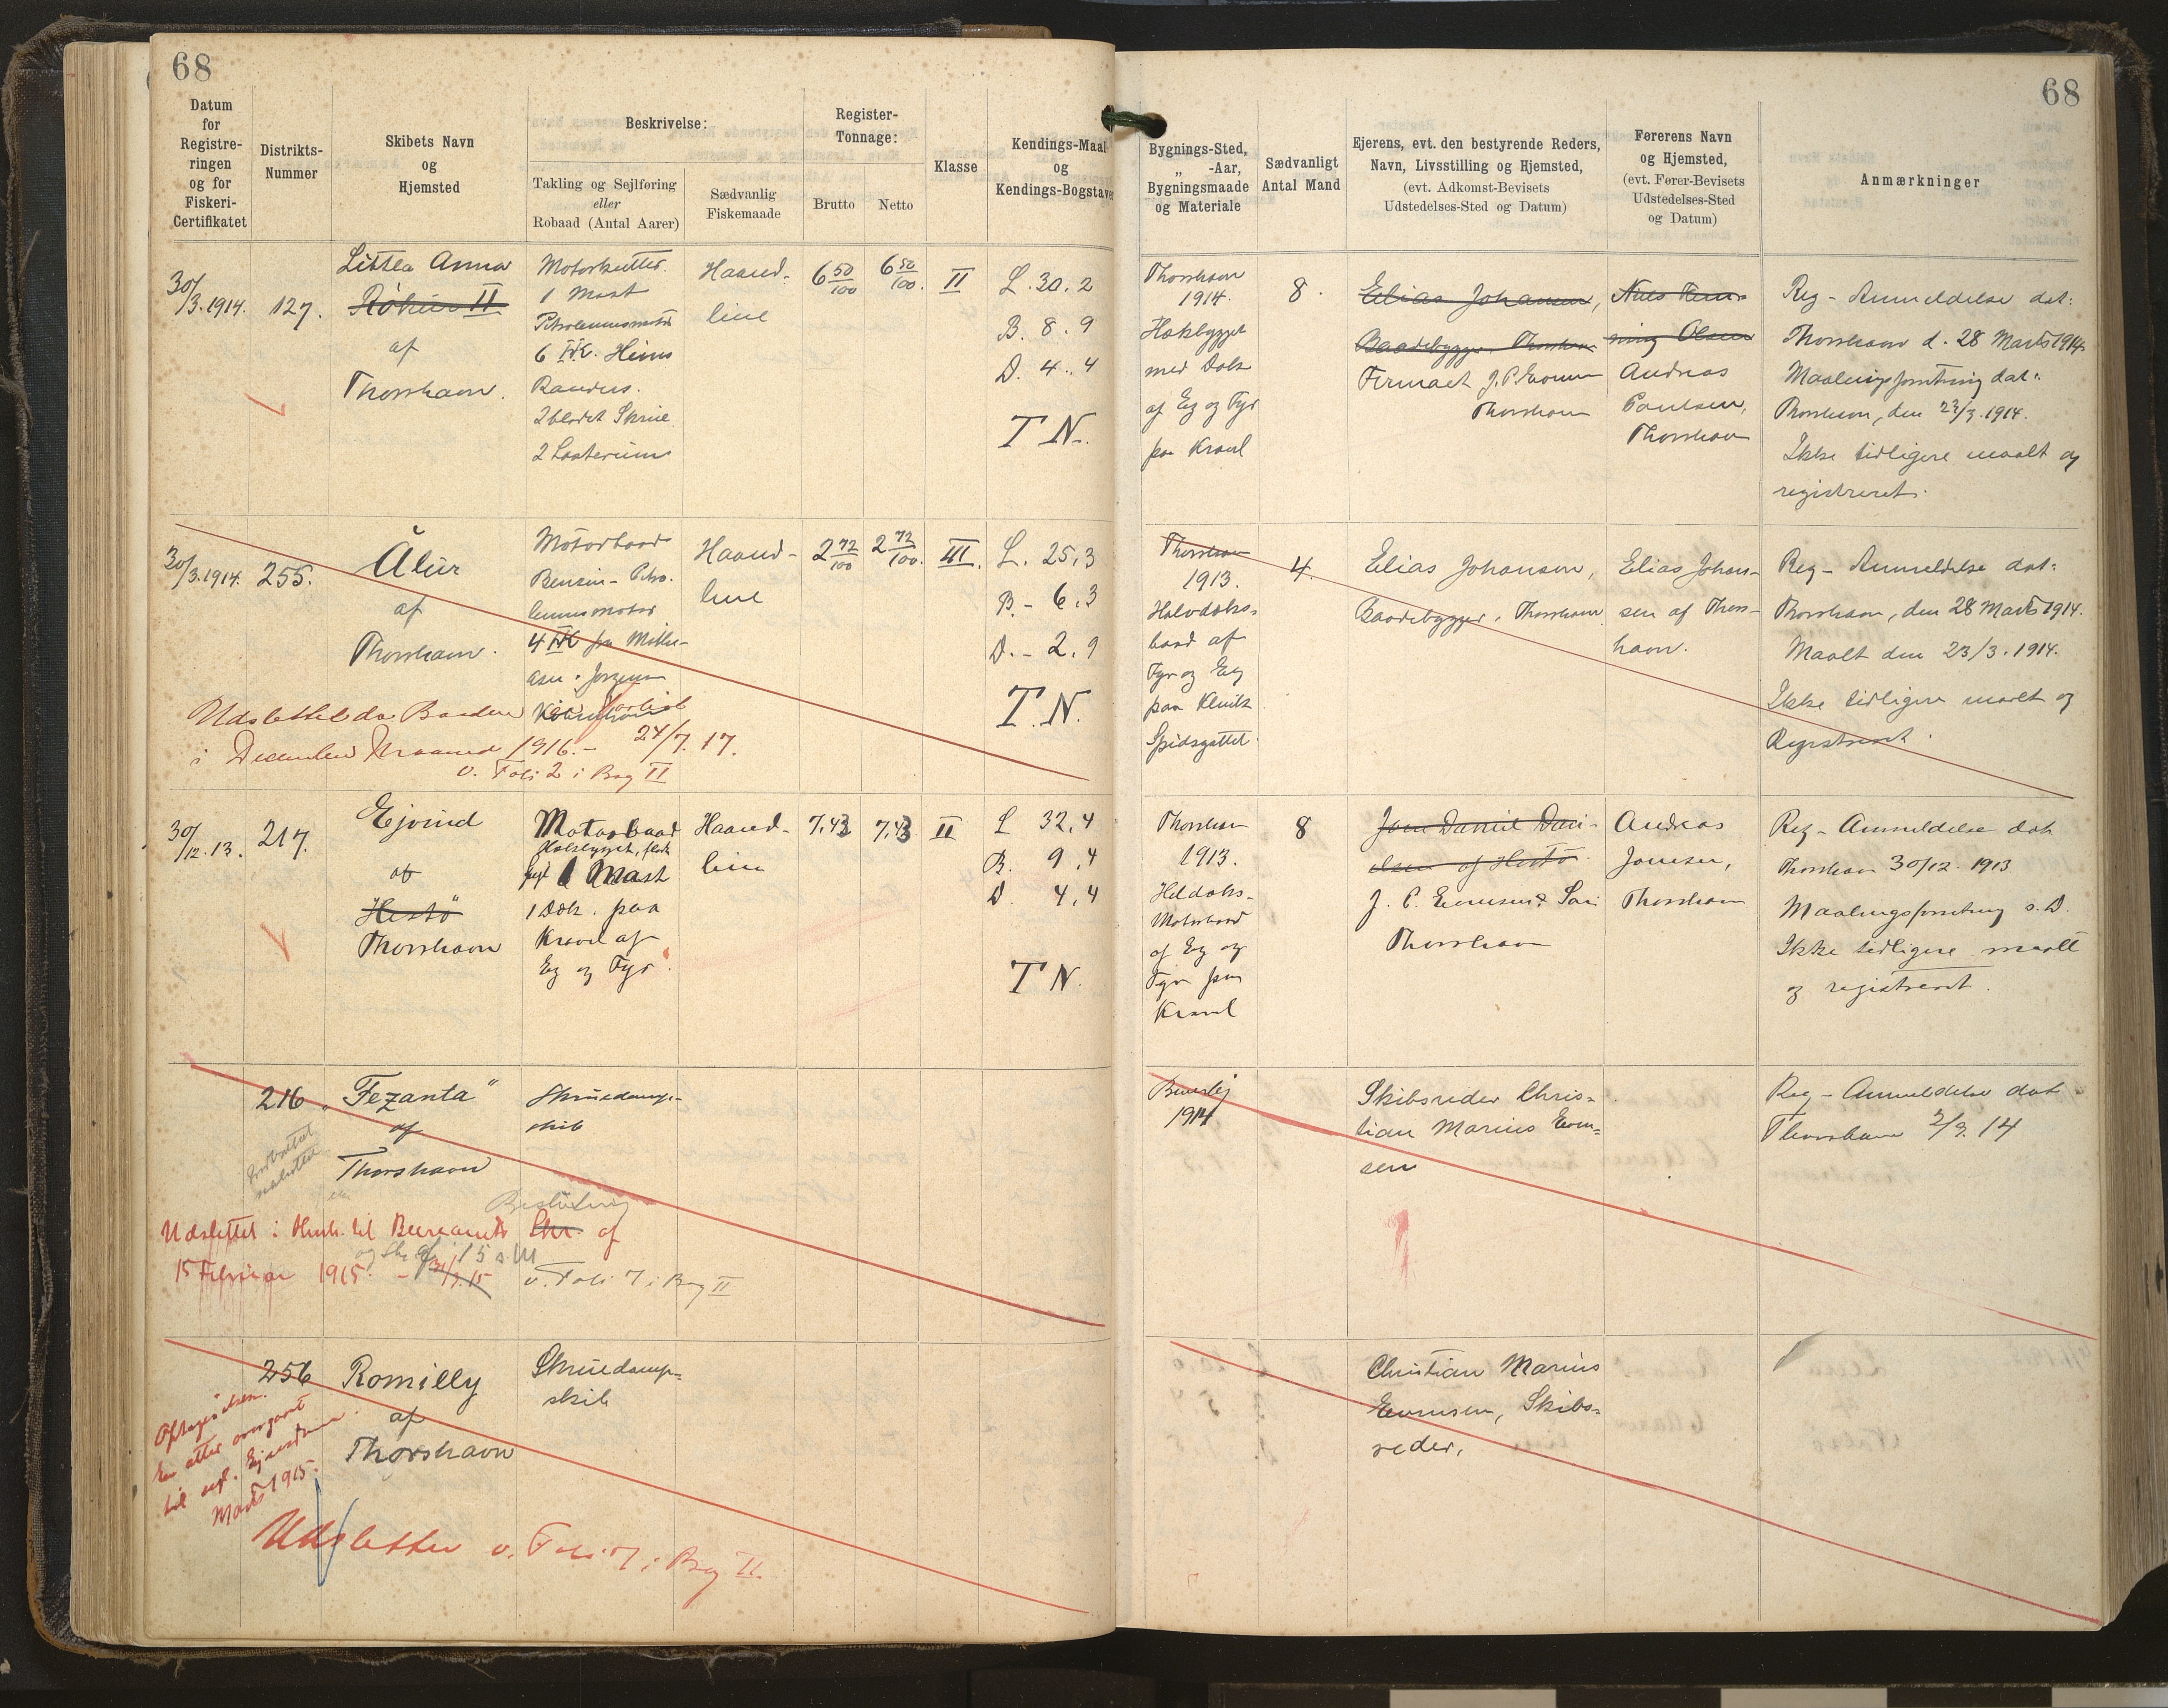 68
68
Datum
for
Registre-
ringen
og for
Fiskeri-
Certifikatet
Distrikts-
Nummer
Skibets Navn
og
Hjemsted
Beskrivelse:
Takling og Sejlføring
eller
Robaad (Antal Aarer)
Sædvanlig
Fiskemaade
Register-
Tonnage:
Brutto
Netto
Klasse
Kendings-Maal
og
Kendings-Bogstaver
Bygnings-Sted,
„ -Aar,
Bygningsmaade
og Materiale
Sædvanligt
Antal Mand
Ejerens, evt. den bestyrende Reders,
Navn, Livsstilling og Hjemsted,
(evt. Adkomst-Bevisets
Udstedelses-Sted og Datum)
Førerens Navn
og Hjemsted,
(evt. Fører-Bevisets
Udstedelses-Sted
og Datum)
Anmærkninger
30/3. 1914.
127.
Littla Anna
II
af
Thorshavn.
Motorkutter.
1 Mast
Petroleumsmotor
6 HK. Heins
Randers.
2 bladet Skrue
2 Lasterum
Haand-
line
6 50/100
6 50/100.
II
L. 30. 2
B. 8. 9
D. 4. 4
T N.
Thorshavn
1914.
Hækbygget
med Dæk
af Eg og Fyr
paa Kravl
8.
Elias Johansen,
Baadebygger. Thorshavn
Firmaet J. P. Evensen
Thorshavn
Niels Hem-
ning Olsen
Andreas
Poulsen,
Thorshavn
Reg-Anmeldelse dat:
Thorshavn d. 28 Marts 1914
Maalingsforretning dat:
Thorshavn, den 23/3. 1914.
Ikke tidligere maalt og
registreret.
30/3. 1914.
255.
Álur
af
Thorshavn.
Motorbaad
Benzin-Petro-
leumsmotor
4 HK fra
Haand-
line
2 72/100
2 72/100.
III.
L. 25,3
B. - 6,3
D. - 2,9
T. N.
Udslettet da Baaden er forlist
i December Maaned 1916. - 24/7. 17.
v. Foli 2 i Bog II
Thorshavn
1913.
Halvdæks-
baad af
Fyr og Eg
paa Klink
Spidsgattet.
4.
Elias Johansen,
Baadebygger, Thorshavn
Elias Johan-
sen af Thors-
havn.
Reg-Anmeldelse dat:
Thorshavn, den 28 Marts 1914.
Maalt den 23/3. 1914.
Ikke tidligere maalt og
Registreret.
30/12. 13.
217.
Ejvind
af
Hestö
Thorshavn
Motorbaad
1 Mast
1 Dæk. paa
Kravel af
Eg og Fyr.
Haand-
line
7,43
7,43
II
L 32,4
B. 9,4
D. 4,4
T N.
Thorshavn
1913.
Heldæks-
Motorbaad
af Eg og
Fyr paa
Kravel
8
Joen Daniel Dani-
elsen af Hestö.
J. P. Evensens Søn
Thorshavn
Andreas
Joensen,
Thorshavn
Reg-Anmeldelse dat
Thorshavn 30/12. 1913
Maalingsforretning s. D.
Ikke tidligere maalt
og registreret.
216
„Fezanta"
af
Thorshavn
Skruedamp-
skib
Beslutning
Udslettet i Henh. til Bureauets Skr. af
15 Februar 1915. - 31/3. 15
v. Foli 7 i Bog II
Beverley
1914
Skibsreder Chris-
tian Marius Even-
sen
Reg-Anmeldelse dat
Thorshavn 2/3. 14
256
Romilly
af
Thorshavn
Skruedamp-
skib
er atter overgaaet
til eng. Ejendom
Marts 1915.
Udslettet v. Foli 7 i Bog II.
Christian Marius
Evensen, Skibs-
reder,